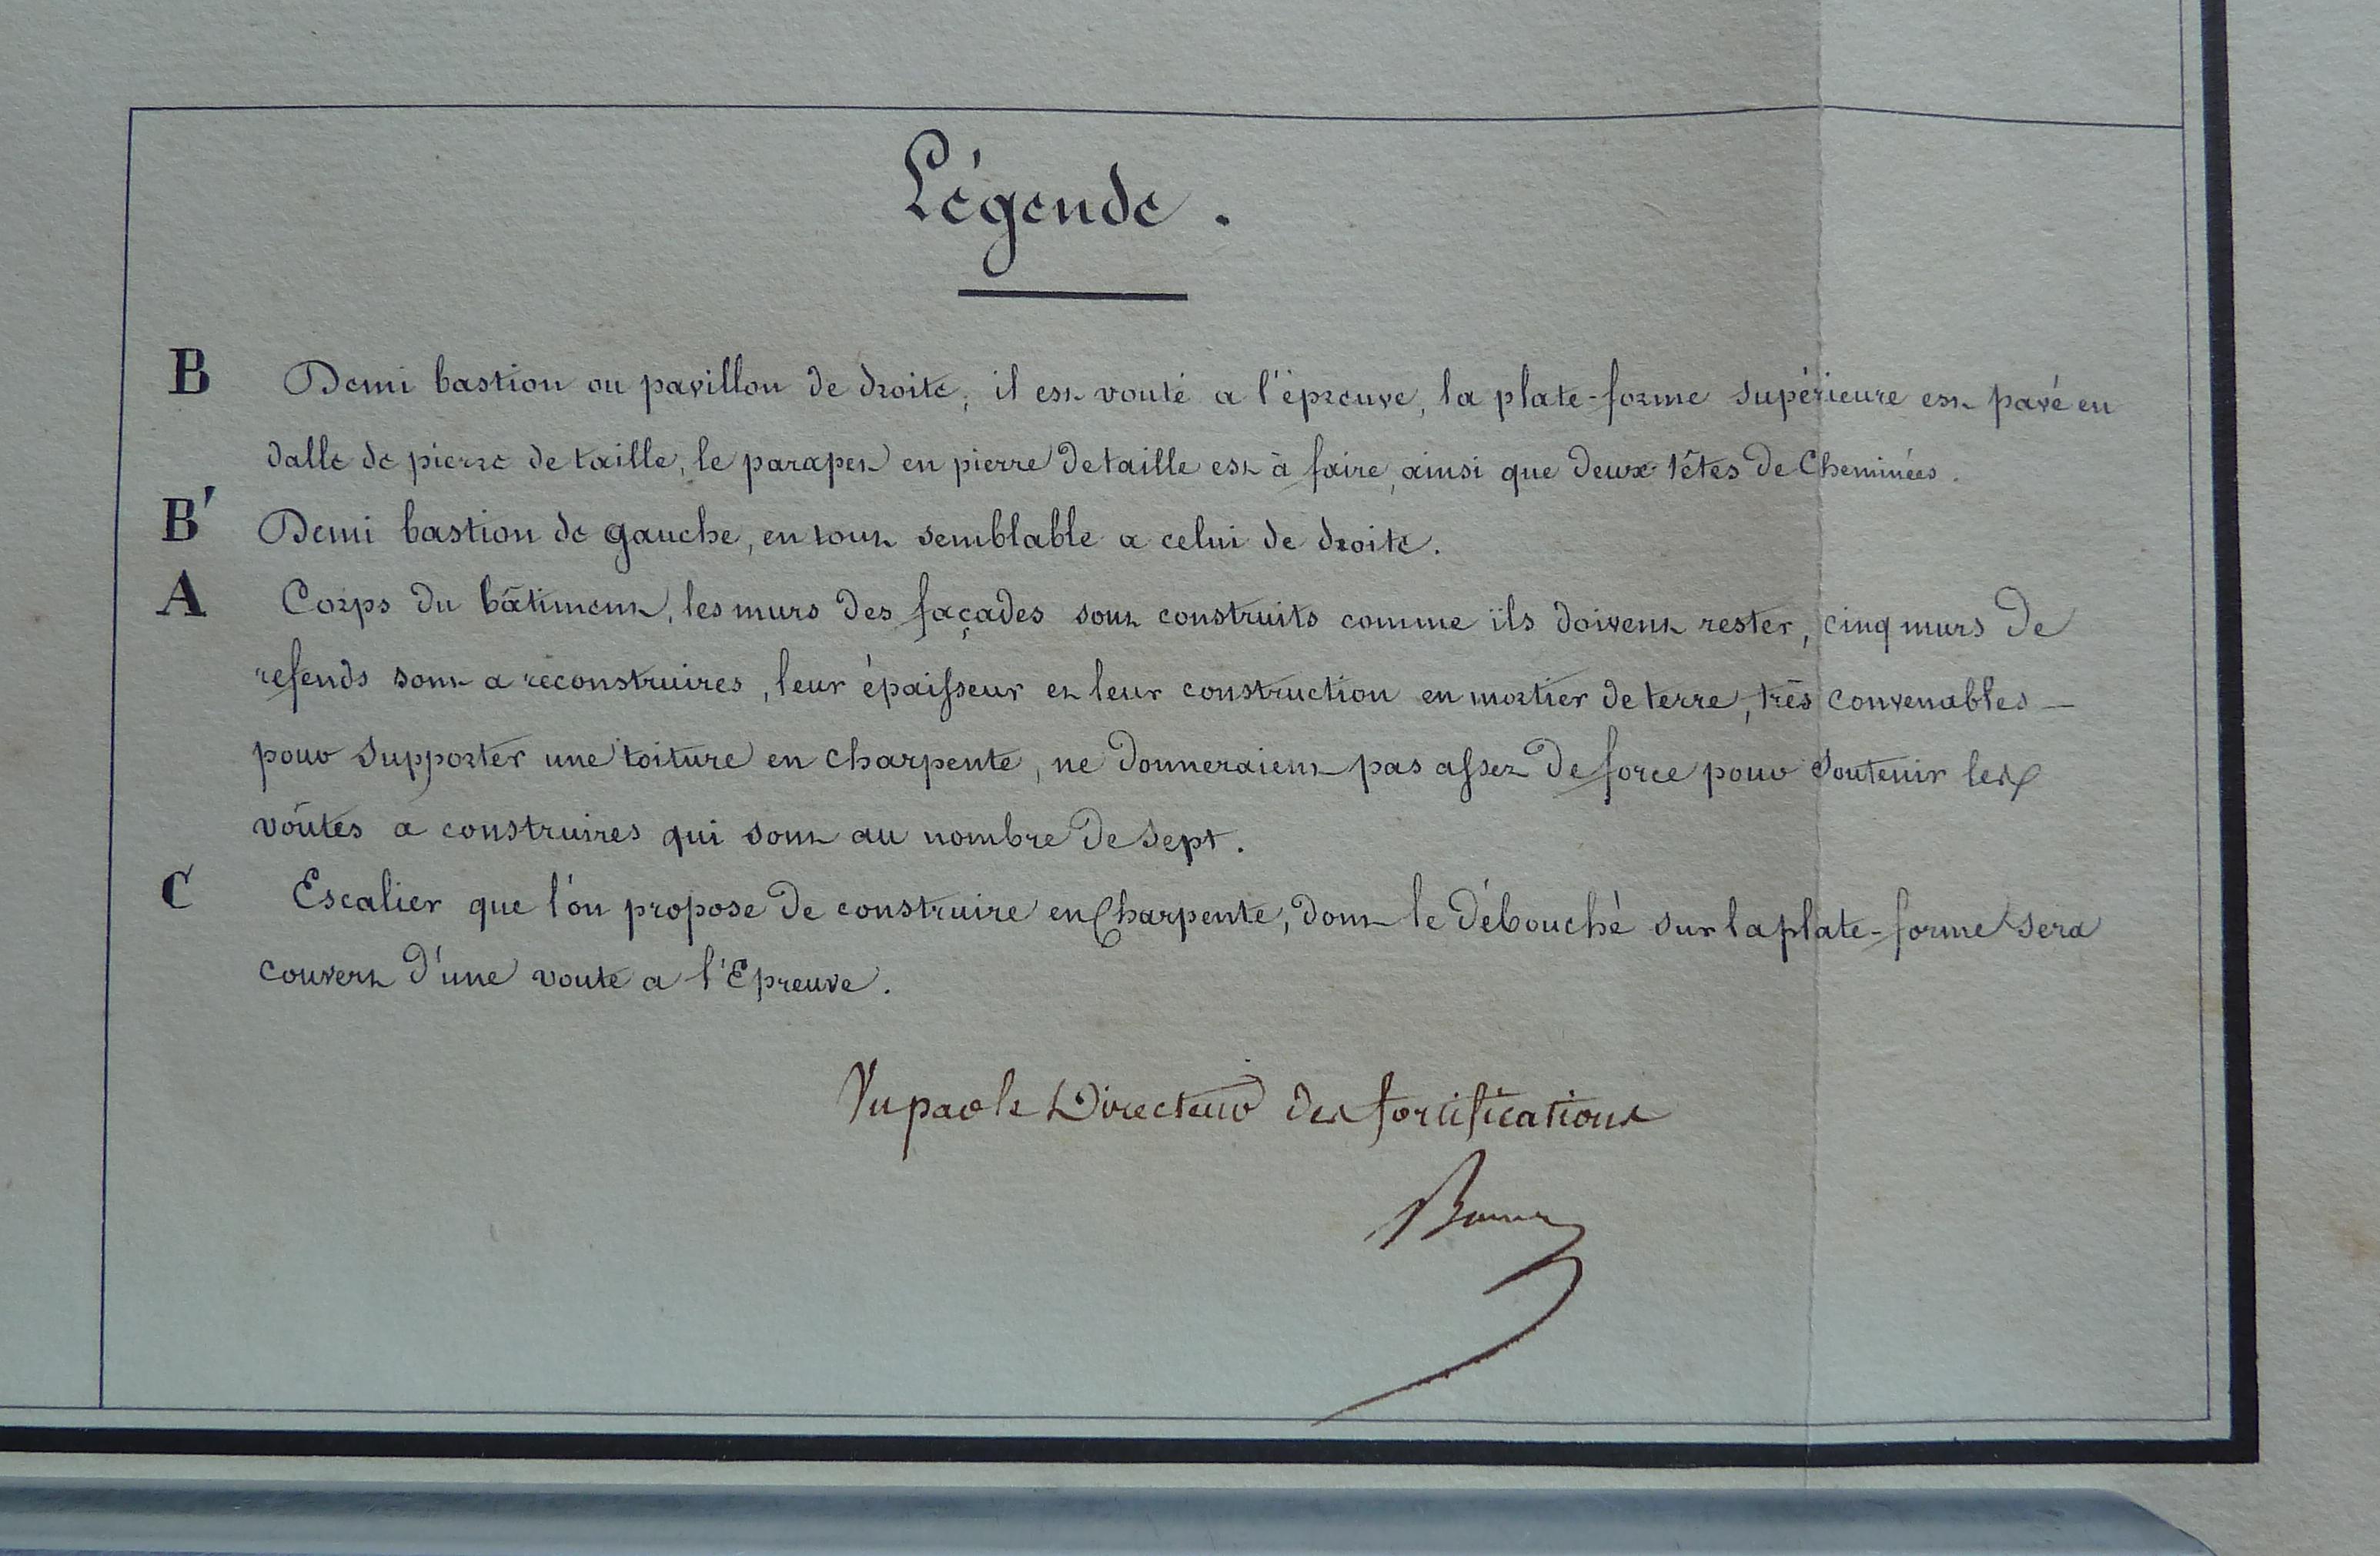 Légende.
B Demi bastion ou pavillon de droite, il est vouté a l'épreuve, la plate-forme supérieure est pavé en
dalle de pierre de taille, le parapet en pierre de taille est à faire, ainsi que deux têtes de Cheminées.
B' Demi bastion de gauche, en tout semblable a celui de droite.
A Corps du bâtiment, les murs des façades sont construits comme ils doivent rester, cinq murs de
refends sont a reconstruires, leur épaisseur et leur construction en mortier de terre, très convenables —
pour supporter une toiture en charpente, ne donneraient pas assez de force pour soutenir les
voûtes a construires qui sont au nombre de sept.
C Escalier que l'on propose de construire en Charpente, dont le débouché sur la plate-forme sera
couvert d'une voute a l'Epreuve.
Vu par le Directeur des fortifications